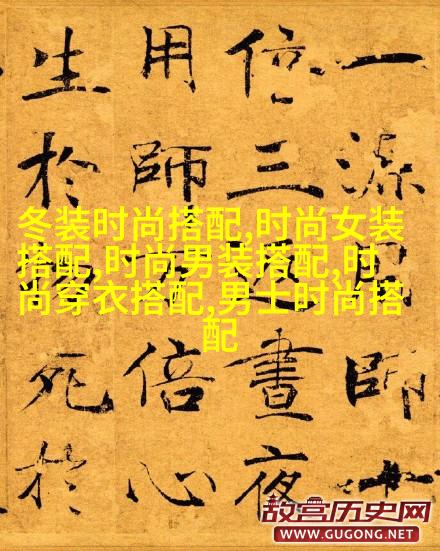 一源用師十
倍三返晝夜
用師倍心
生於死於
冬装时尚搭配,时尚女装
搭配,时尚男装搭配,时
尚穿衣搭配,男士时尚搭
配
故宫历史网
WWW.GUGONG.NET